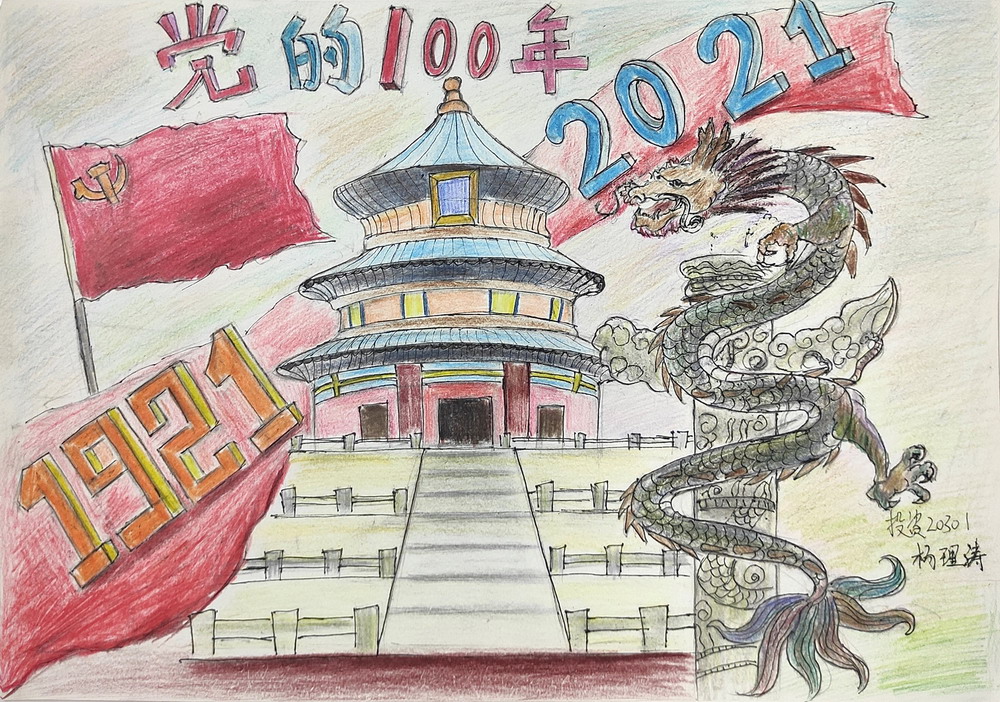 党的100年
2021
1921
投资20301
杨理涛